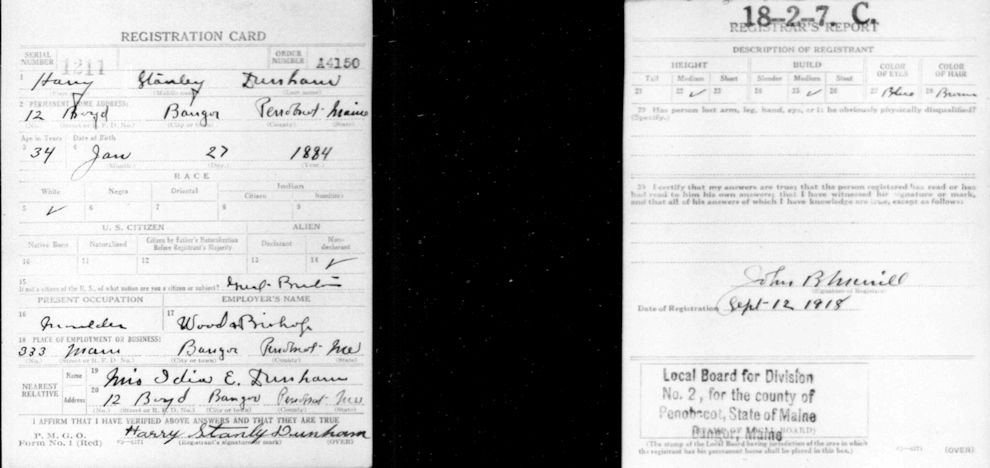 REGISTRATION CARD
SERIAL NUMBER 1211 ORDER NUMBER A4150
1 Harry Stanley Dunham
(First name) (Middle name) (Last name)
2 PERMANENT HOME ADDRESS:
12 Boyd Bangor Penobscot Maine
(No.) (Street or R. F. D. No.) (City or town) (County) (State)
Age in Years Date of Birth
3 34 4 Jan 27 1884
(Month.) (Day.) (Year.)
RACE
White Negro Oriental Indian
Citizen Noncitizen
5 ✓ 6 7 8 9
U. S. CITIZEN ALIEN
Native Born Naturalized Citizen by Father's Naturalization Before Registrant's Majority Declarant Non-declarant
10 11 12 13 14 ✓
15
If not a citizen of the U. S., of what nation are you a citizen or subject?
PRESENT OCCUPATION EMPLOYER'S NAME
16 Moulder 17 Wood & Bishop
18 PLACE OF EMPLOYMENT OR BUSINESS:
333 Main Bangor Penobscot Me
(No.) (Street or R. F. D. No.) (City or town) (County) (State)
NEAREST RELATIVE
Name 19 Mrs E. Dunham
Address 20 12 Boyd Bangor Penobscot Me
(No.) (Street or R. F. D. No.) (City or town) (County) (State)
I AFFIRM THAT I HAVE VERIFIED ABOVE ANSWERS AND THAT THEY ARE TRUE
P. M. G. O.
Form No. 1 (Red) Harry Stanly Dunham
(Registrant's signature or mark) (OVER)
18-2-7. C.
REGISTRAR'S REPORT
DESCRIPTION OF REGISTRANT
HEIGHT BUILD COLOR OF EYES COLOR OF HAIR
Tall Medium Short Slender Medium Stout
21 22 ✓ 23 24 25 ✓ 26 27 Blue 28 Brown
29 Has person lost arm, leg, hand, eye, or is he obviously physically disqualified?
(Specify.)
30 I certify that my answers are true; that the person registered has read or has
had read to him his own answers; that I have witnessed his signature or mark,
and that all of his answers of which I have knowledge are true, except as follows:
John B Merrill
(Signature of Registrar)
Date of Registration Sept 12 1918
Local Board for Division
No. 2, for the county of
Penobscot, State of Maine
Bangor, Maine
(STAMP OF LOCAL BOARD)
(The stamp of the Local Board having jurisdiction of the area in which
the registrant has his permanent home shall be placed in this box.) (OVER)